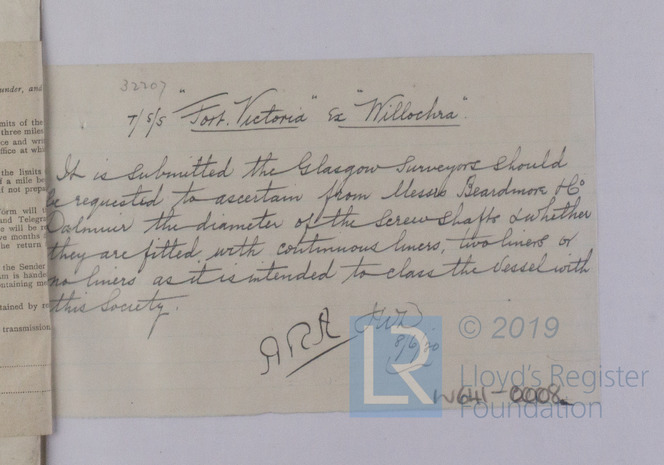 under, and
mits of the
three miles
ce and wri
office at whi
the limits
f a mile be
if not prepa
Form will
and Telegra
e will be re
ve months
the return
the Sender
am is hande
ontaining me
tained by
transmission
32207
T/S/S "Fort. Victoria" Ex "Willochra".
It is submitted the Glasgow Surveyors should
be requested to ascertain from Messrs Beardmore & Co
Dalmuir the diameter of the screw shafts & whether
they are fitted with continuous liners, two liners or
no liners as it is intended to class the Vessel with
this Society.
8/6/20
LR
© 2019
Lloyd's Register
Foundation
W641-0008